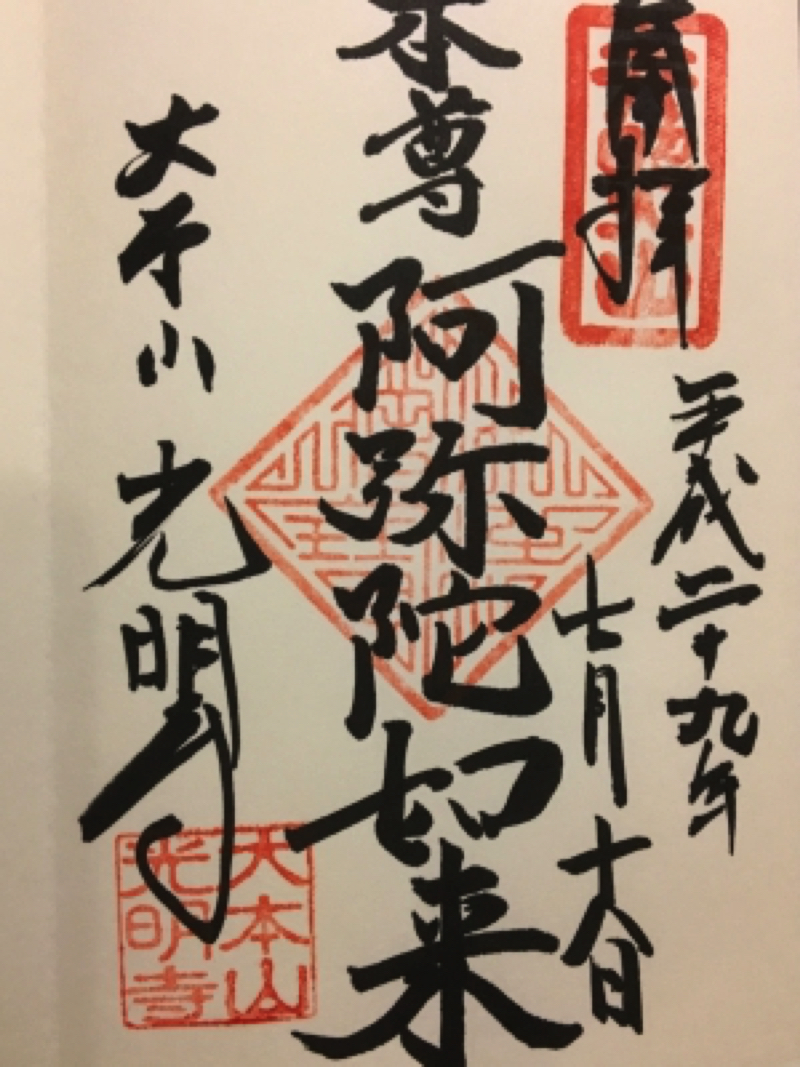 奉拝
平成二十九年
七月十八日
本尊
阿弥陀如来
大本山
光明寺
大本山
光明寺